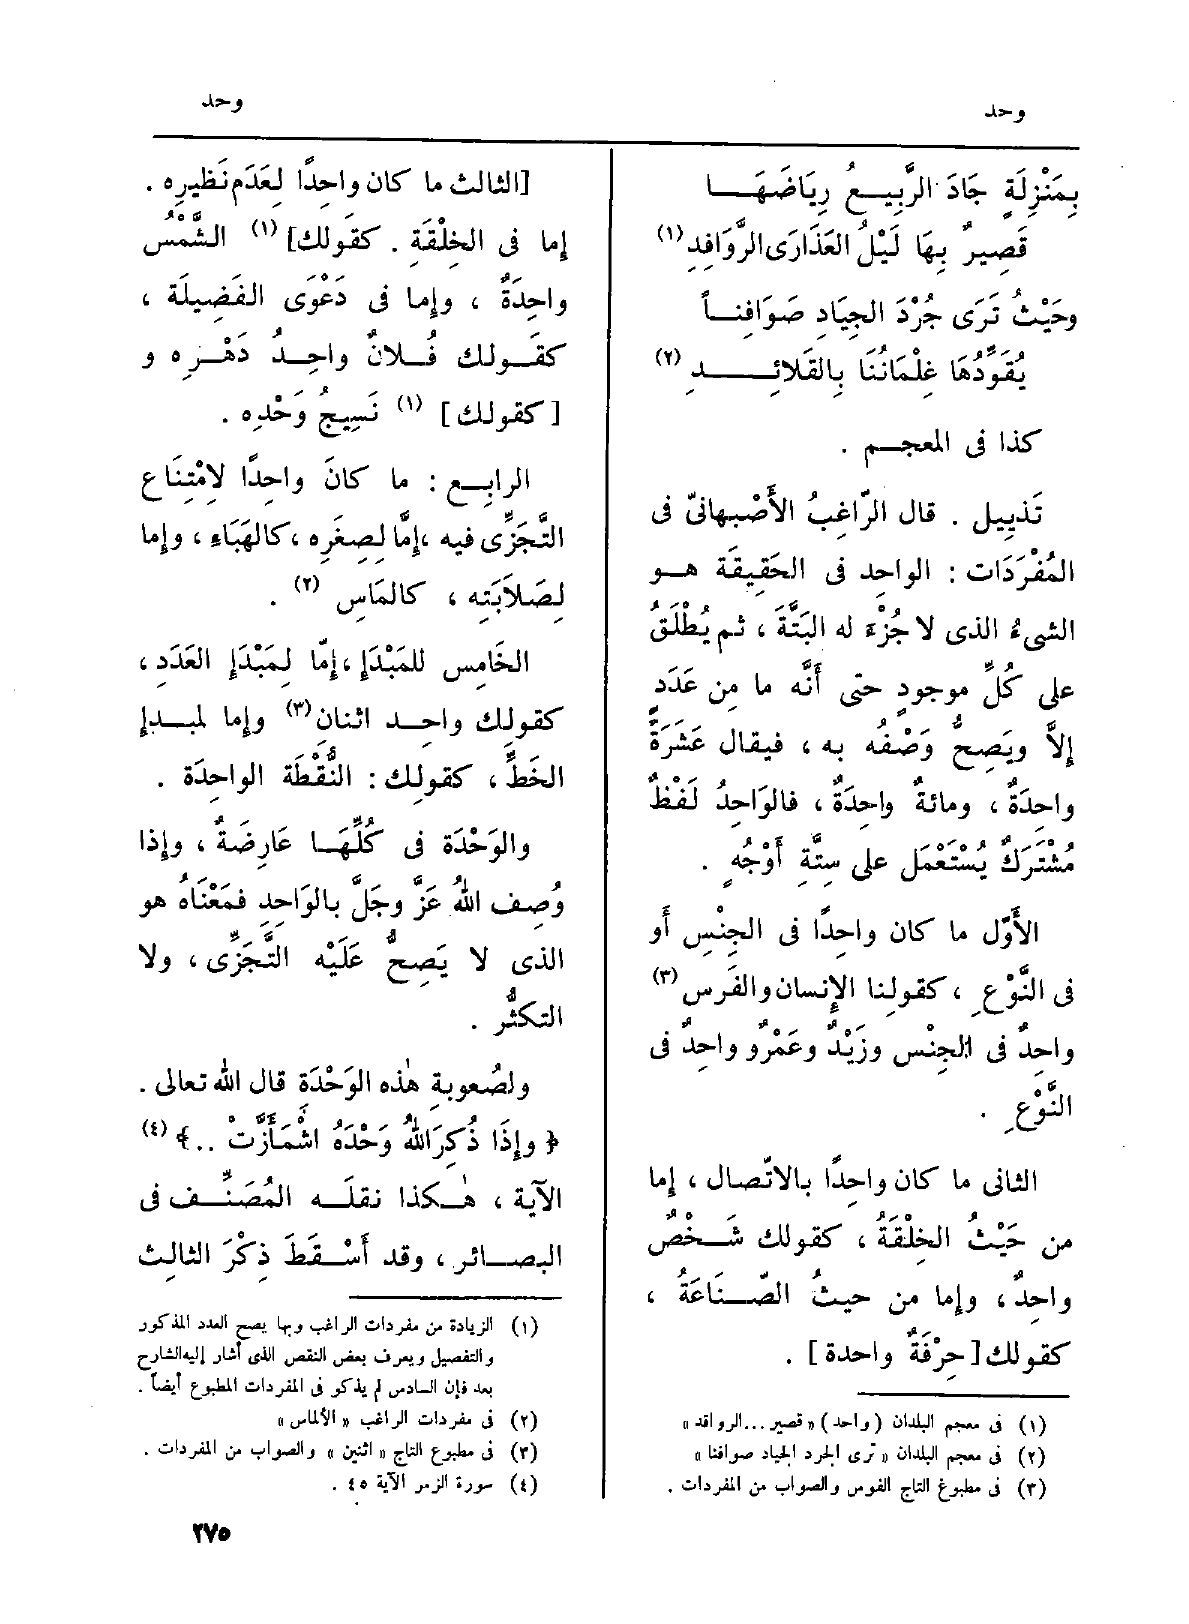 وحد
وحد
بِمَنْزِلَةٍ جَادَ الرَّبِيعُ رِيَاضَهَا
قَصِيرٌ بِهَا لَيْلُ العَذَارَى الرَّوَافِدِ (١)
وحَيْثُ تَرَى جُرْدَ الجِيَادِ صَوَافِنًا
يُقَوِّدُهَا غِلْمَانُنَا بِالقَلائِدِ (٢)
كذا فى المعجم .
تَذييل . قال الرّاغِبُ الأَصْبهانىّ فى
المُفْرَدَات : الواحِد فى الحَقِيقَة هو
الشىءُ الذى لا جُزْءَ له البَتَّةَ ، ثم يُطْلَقُ
على كُلِّ موجودٍ حتى أَنَّه ما مِن عَدَدٍ
إِلاَّ ويَصِحُّ وَصْفُه به ، فيقال عَشَرَةٌ
واحِدَةٌ ، ومائةٌ واحِدَةٌ ، فالوَاحِدُ لَفْظٌ
مُشْتَرَكٌ يُسْتَعْمَل على سِتَّةِ أَوْجُهٍ .
الأَوّل ما كان واحِدًا فى الجِنْسِ أَو
فى النَّوْعِ ، كقولنا الإِنسان والفَرَس (٣)
واحِدٌ فى الجِنْس وزَيْدٌ وعَمْرٌو واحِدٌ فى
النَّوْعِ .
الثانى ما كان واحِدًا بالاتّصال ، إِما
من حَيْثُ الخِلْقَةُ ، كقولك شَخْصٌ
واحِدٌ ، وإِما من حيثُ الصّنَاعَةُ ،
كقولك [حِرْفَةٌ واحدة] .
(١) فى معجم البلدان (واحد) « قصير...الرواقد »
(٢) فى معجم البلدان « ترى الجرد الجياد صوافنا »
(٣) فى مطبوع التاج الفوس والصواب من المفردات .
[الثالث ما كان واحِدًا لِعَدَم نَظيرِه .
إِما فى الخِلْقَةِ . كقَولك] (١) الشَّمْسُ
واحِدَةٌ ، وإِما فى دَعْوَى الفَضِيلَة ،
كقَولك فُلانٌ واحِدُ دَهْرِه و
[كقولك] (١) نَسِيجُ وَحْدِه .
الرابِع : ما كانَ واحِدًا لاِمْتِنَاعِ
التَّجَزِّى فيه ، إِمَّا لِصِغَرِه ، كالهَبَاءِ ، وإِما
لِصَلاَبَتِه ، كالمَاسِ (٢) .
الخَامِس للمَبْدَإِ ، إِمّا لِمَبْدَإِ العَدَدِ ،
كقولك واحِد اثنان (٣) وإِما لمبدإِ
الخَطِّ ، كقولِك : النُّقْطَة الواحِدَة .
والوَحْدَة فى كُلِّهَا عَارِضَةٌ ، وإِذا
وُصِف اللهُ عَزَّ وجَلَّ بالوَاحِدِ فمَعْنَاهُ هو
الذى لا يَصِحُّ عَلَيْه التَّجَزِّى ، ولا
التكثُّر .
ولصُعوبةِ هٰذه الوَحْدَةِ قال الله تعالى .
﴿ وإِذَا ذُكِرَ اللهُ وَحْدَهُ اشْمَأَزَّتْ .. ﴾ (٤)
الآية ، هٰكذا نقلَه المُصَنِّف فى
البصائر ، وقد أَسْقَطَ ذِكْرَ الثالِث
(١) الزيادة من مفردات الراغب وبها يصح العدد المذكور
والتفصيل ويعرف بعض النقص الذى أشار إليه الشارح
بعد فإن السادس لم يذكر فى المفردات المطبوع أيضاً .
(٢) فى مفردات الراغب « الألماس »
(٣) فى مطبوع التاج « اثنين » والصواب من المفردات .
(٤) سورة الزمر الآية ٤٥ .
٢٧٥